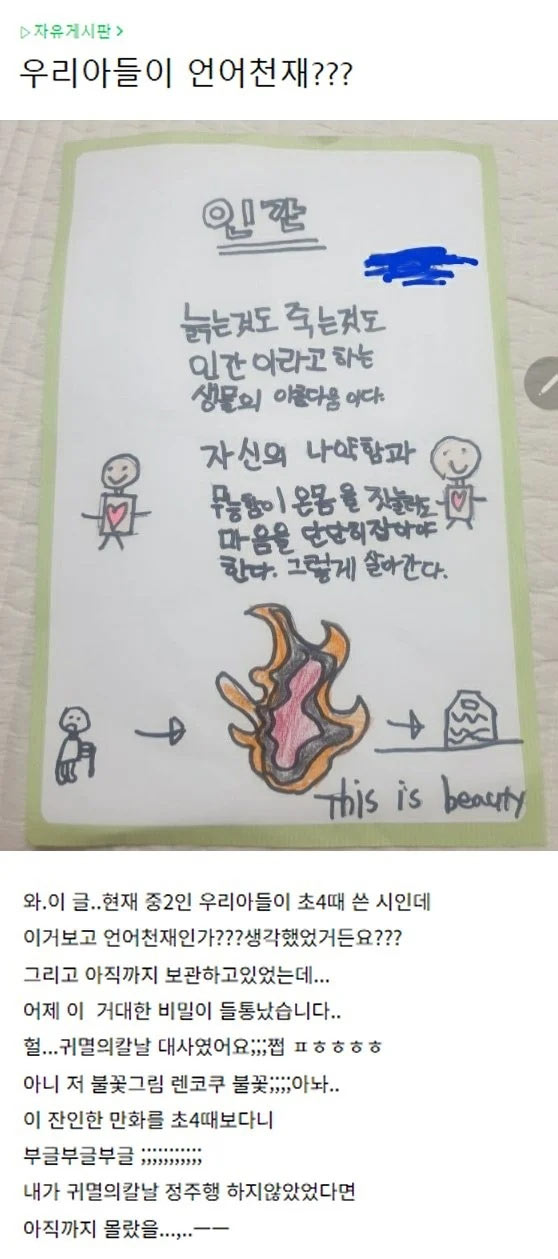 ▷자유게시판 >
우리아들이 언어천재???
인간
늙는것도 죽는것도
인간 이라고 하는
생물의 아름다움 이다.
자신의 나약함과
무능함이 온몸을 짓눌러도
마음을 단단히잡아야
한다. 그렇게 살아간다.
This is beauty
와.이 글..현재 중2인 우리아들이 초4때 쓴 시인데
이거보고 언어천재인가???생각했었거든요???
그리고 아직까지 보관하고있었는데...
어제 이  거대한 비밀이 들통났습니다..
헐...귀멸의칼날 대사였어요;;;쩝 ㅍㅎㅎㅎㅎ
아니 저 불꽃그림 렌코쿠 불꽃;;;;아놔..
이 잔인한 만화를 초4때보다니
부글부글부글 ;;;;;;;;;;;
내가 귀멸의칼날 정주행 하지않았었다면
아직까지 몰랐을...,..ㅡㅡ